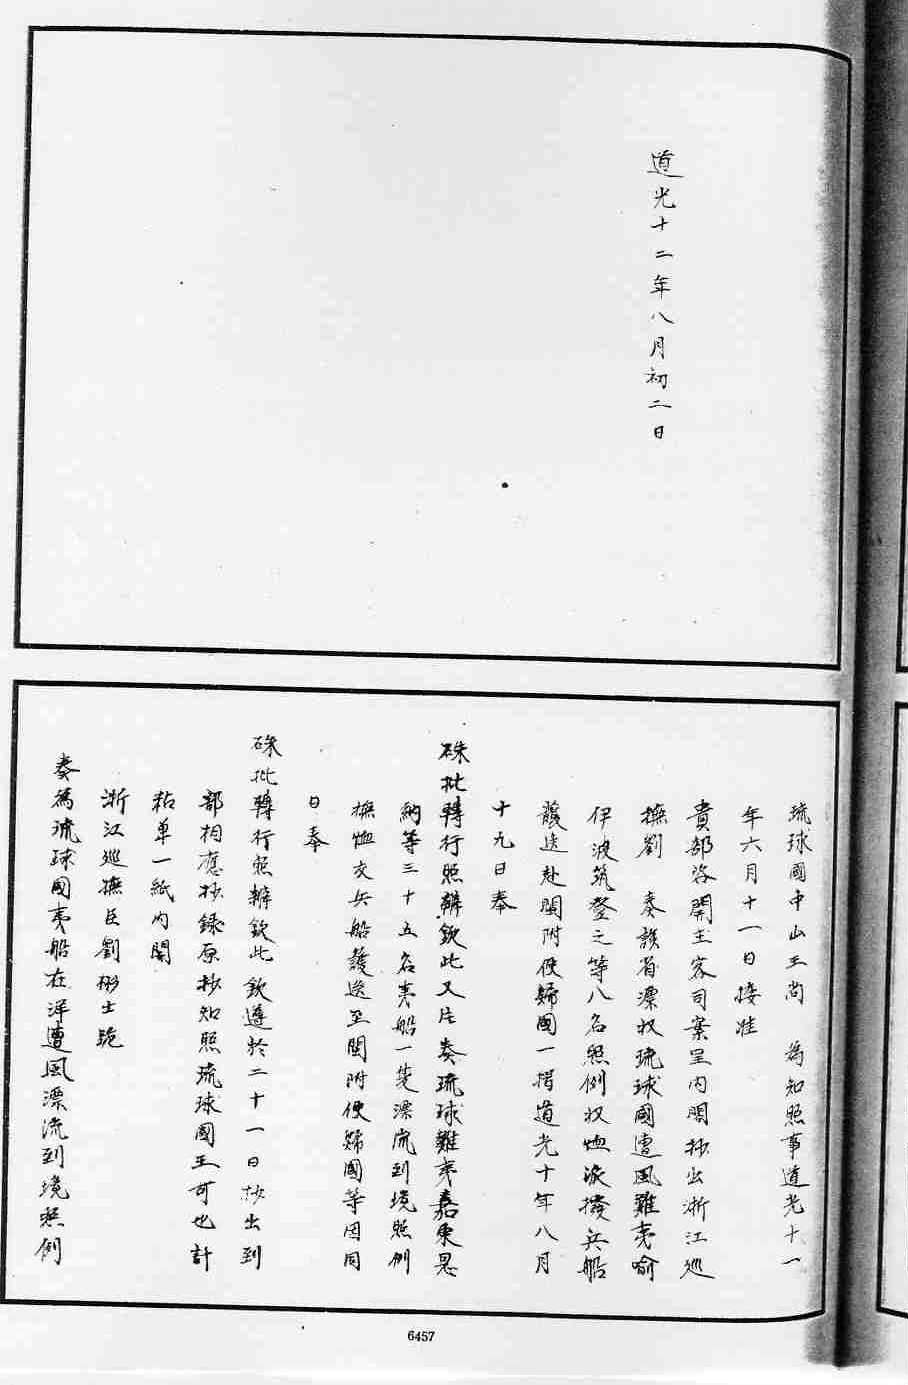 道光十二年八月初二日
琉球國中山王尚　為知照事道光十一
年六月十一日接准
貴部咨開主客司案呈內閣抄出浙江巡
撫劉　奏該省漂收琉球國遭風難夷喻
伊波筑登之等八名照例收恤派撥兵船
護送赴閩附便歸國一摺道光十年八月
十九日奉
硃批轉行照辦欽此又片奏琉球難夷嘉東恩
納等三十五名夷船一隻漂流到境照例
撫恤交兵船護送至閩附便歸國等因同
日奉
硃批轉行照辦欽此欽遵於二十一日抄出到
部相應抄錄原抄知照琉球國王可也計
粘單一紙內開
浙江巡撫臣劉彬士跪
奏為琉球國夷船在洋遭風漂流到境照例
6457